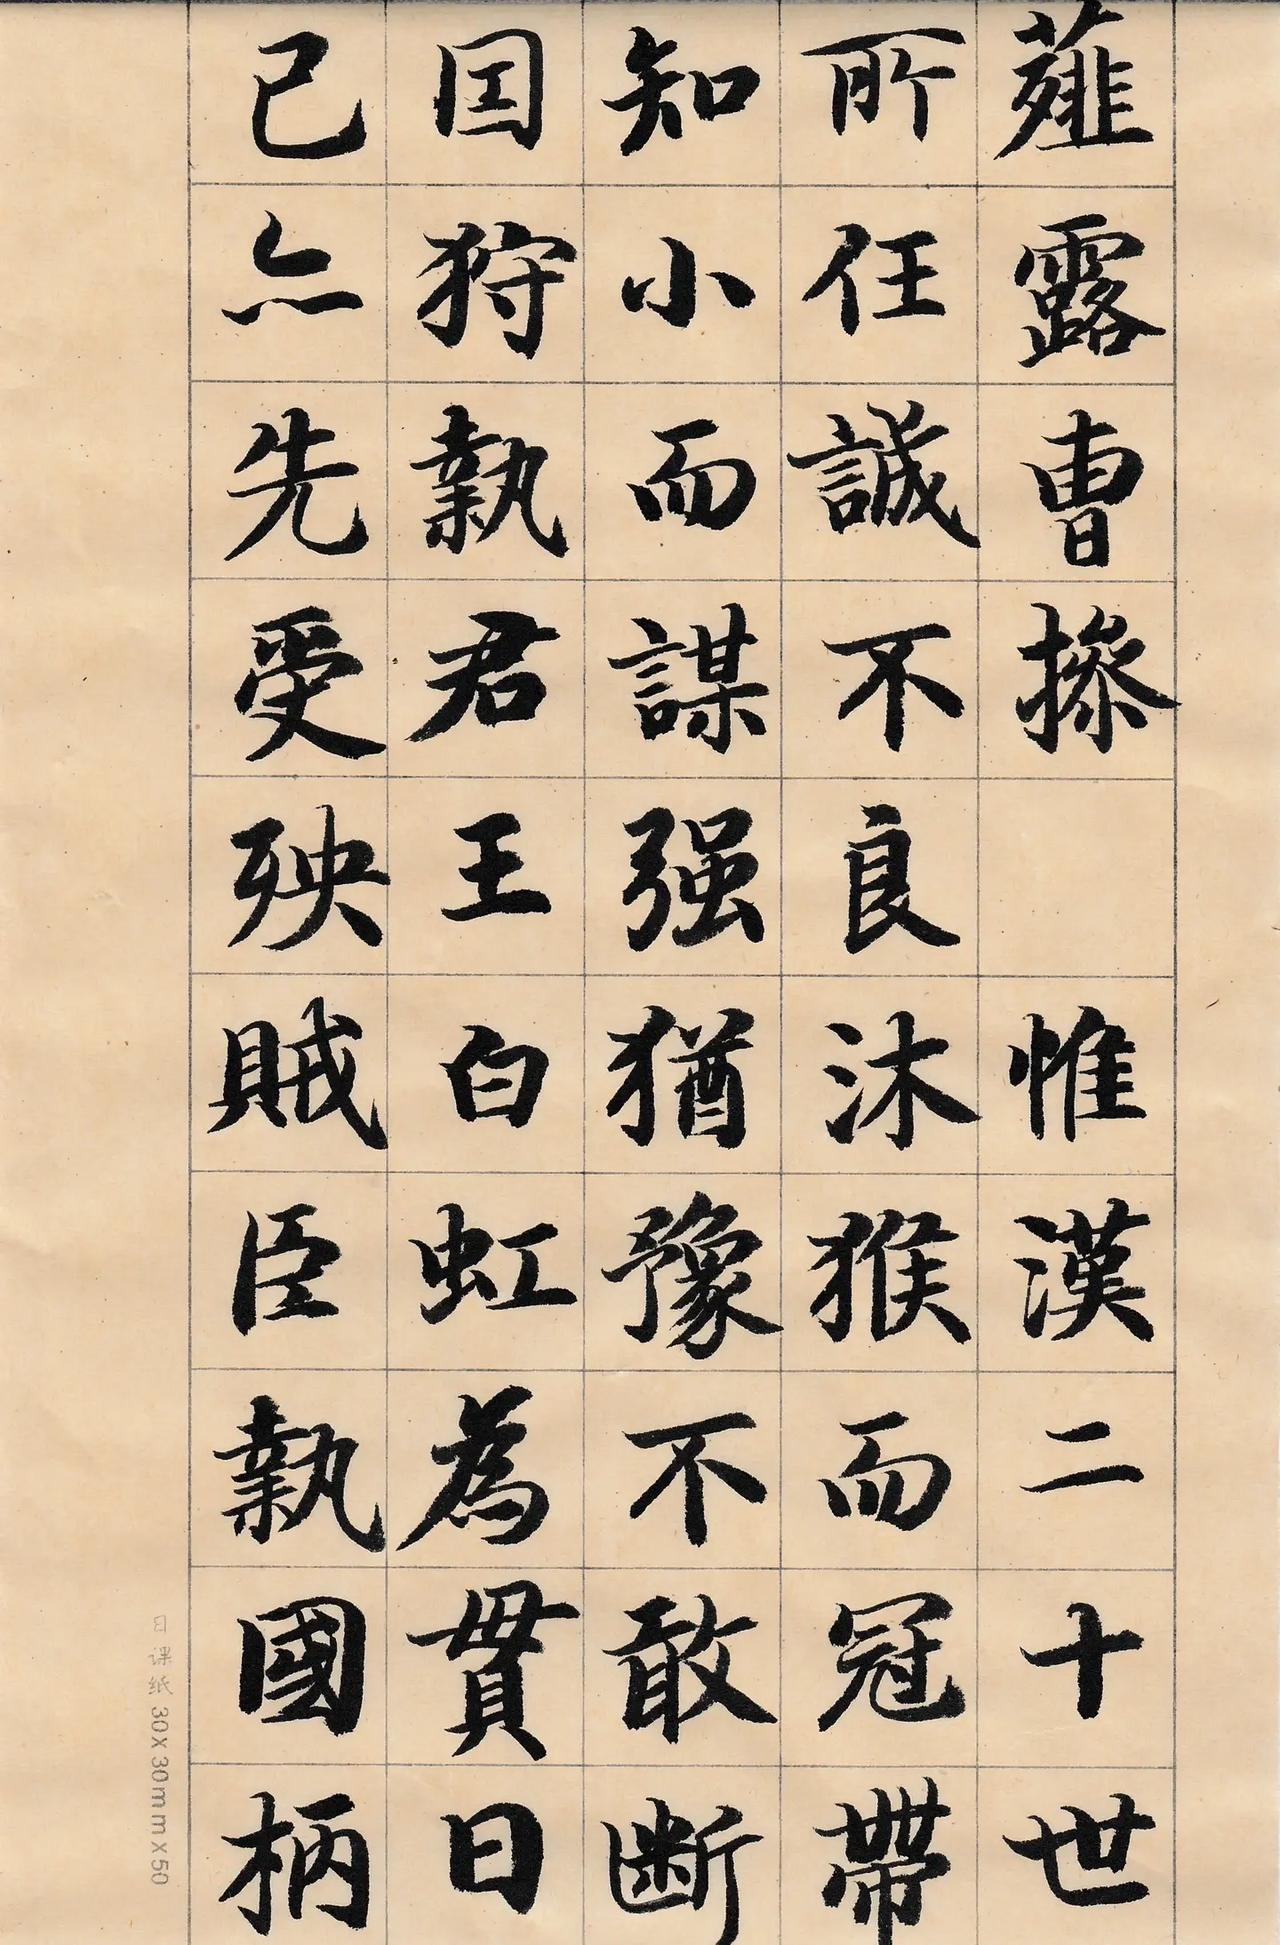 薤露曹操 惟漢二十世
所任誠不良沐猴而冠帶
知小而謀强猶豫不敢斷
囯狩執君王白虹為貫日
已亦先受殃賊臣執國柄
日课纸 30x30mmx50